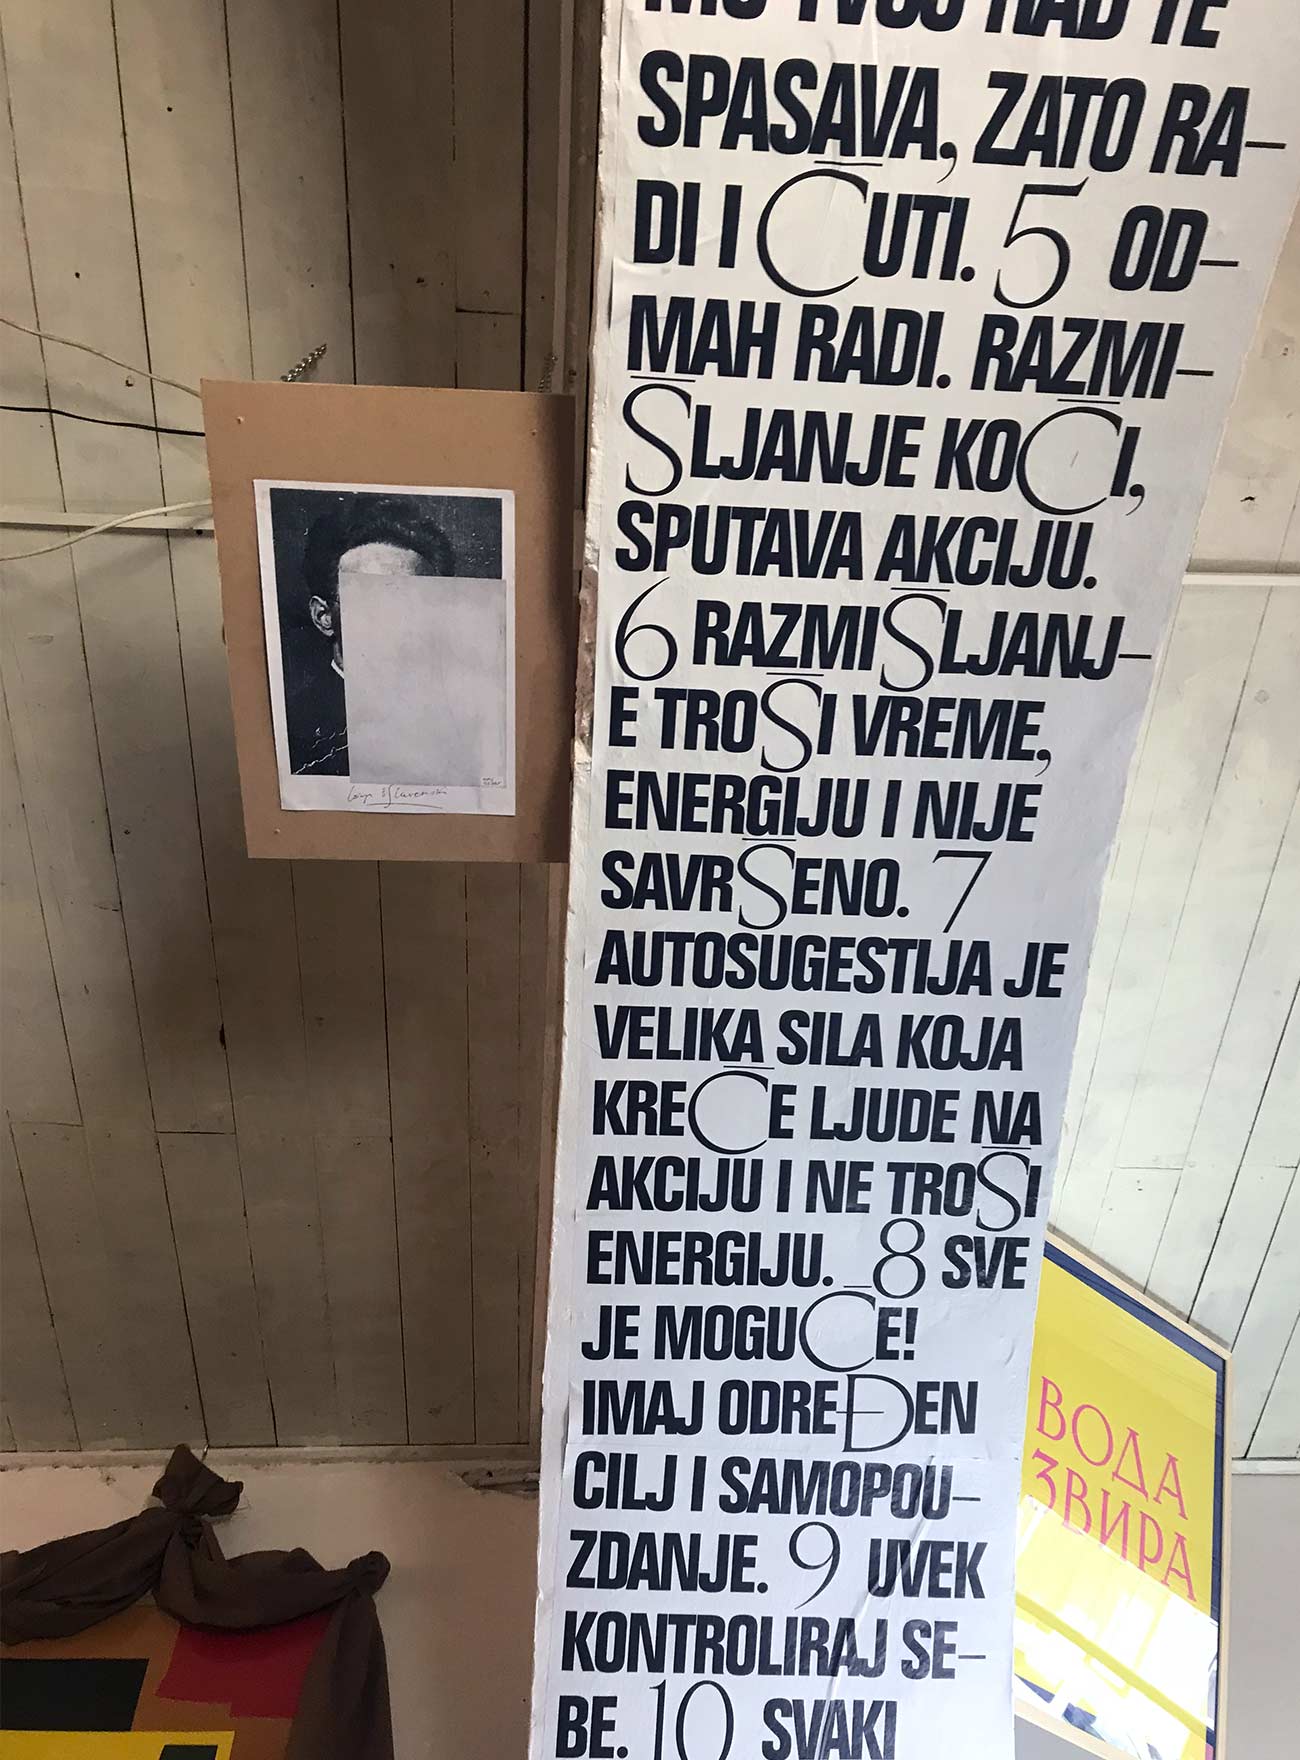 MO TVOJ RAD TE
SPASAVA, ZATO RA–
DI I ĆUTI. 5 OD–
MAH RADI. RAZMI–
ŠLJANJE KOČI,
SPUTAVA AKCIJU.
6 RAZMIŠLJANJ–
E TROŠI VREME,
ENERGIJU I NIJE
SAVRŠENO. 7
AUTOSUGESTIJA JE
VELIKA SILA KOJA
KREĆE LJUDE NA
AKCIJU I NE TROŠI
ENERGIJU. 8 SVE
JE MOGUĆE!
IMAJ ODREĐEN
CILJ I SAMOPOU–
ZDANJE. 9 UVEK
KONTROLIRAJ SE–
BE. 10 SVAKI
Slavenski
ВОДА
ЗВИРА